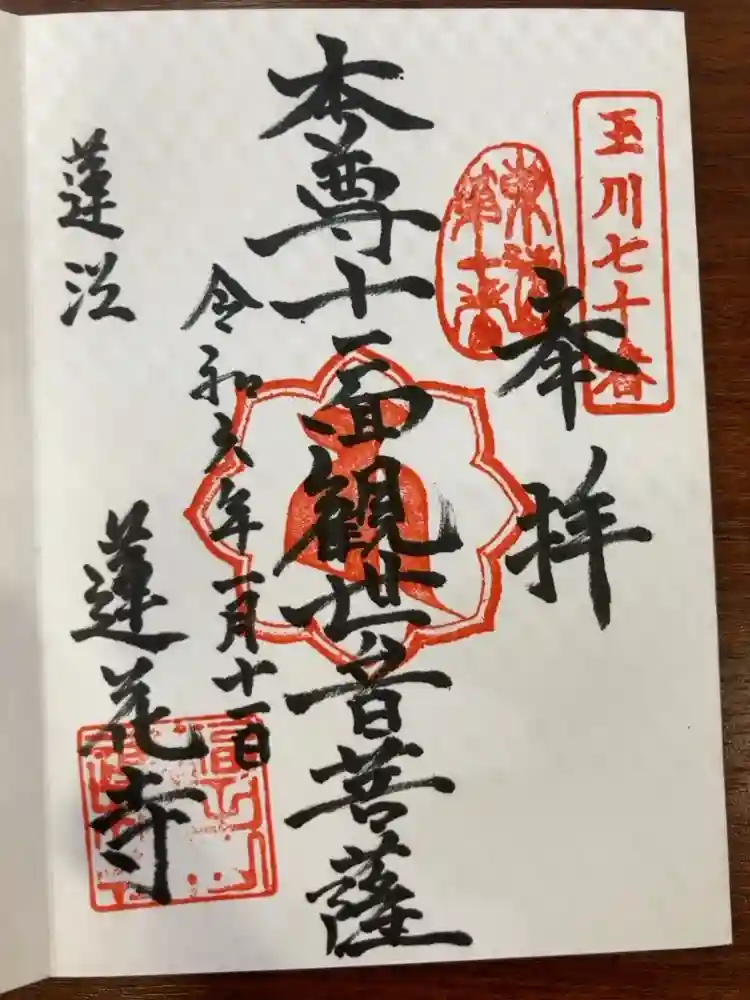 玉川七十番
奉拝
本尊十一面観世音菩薩
令和六年一月十一日
蓮沼
蓮花寺